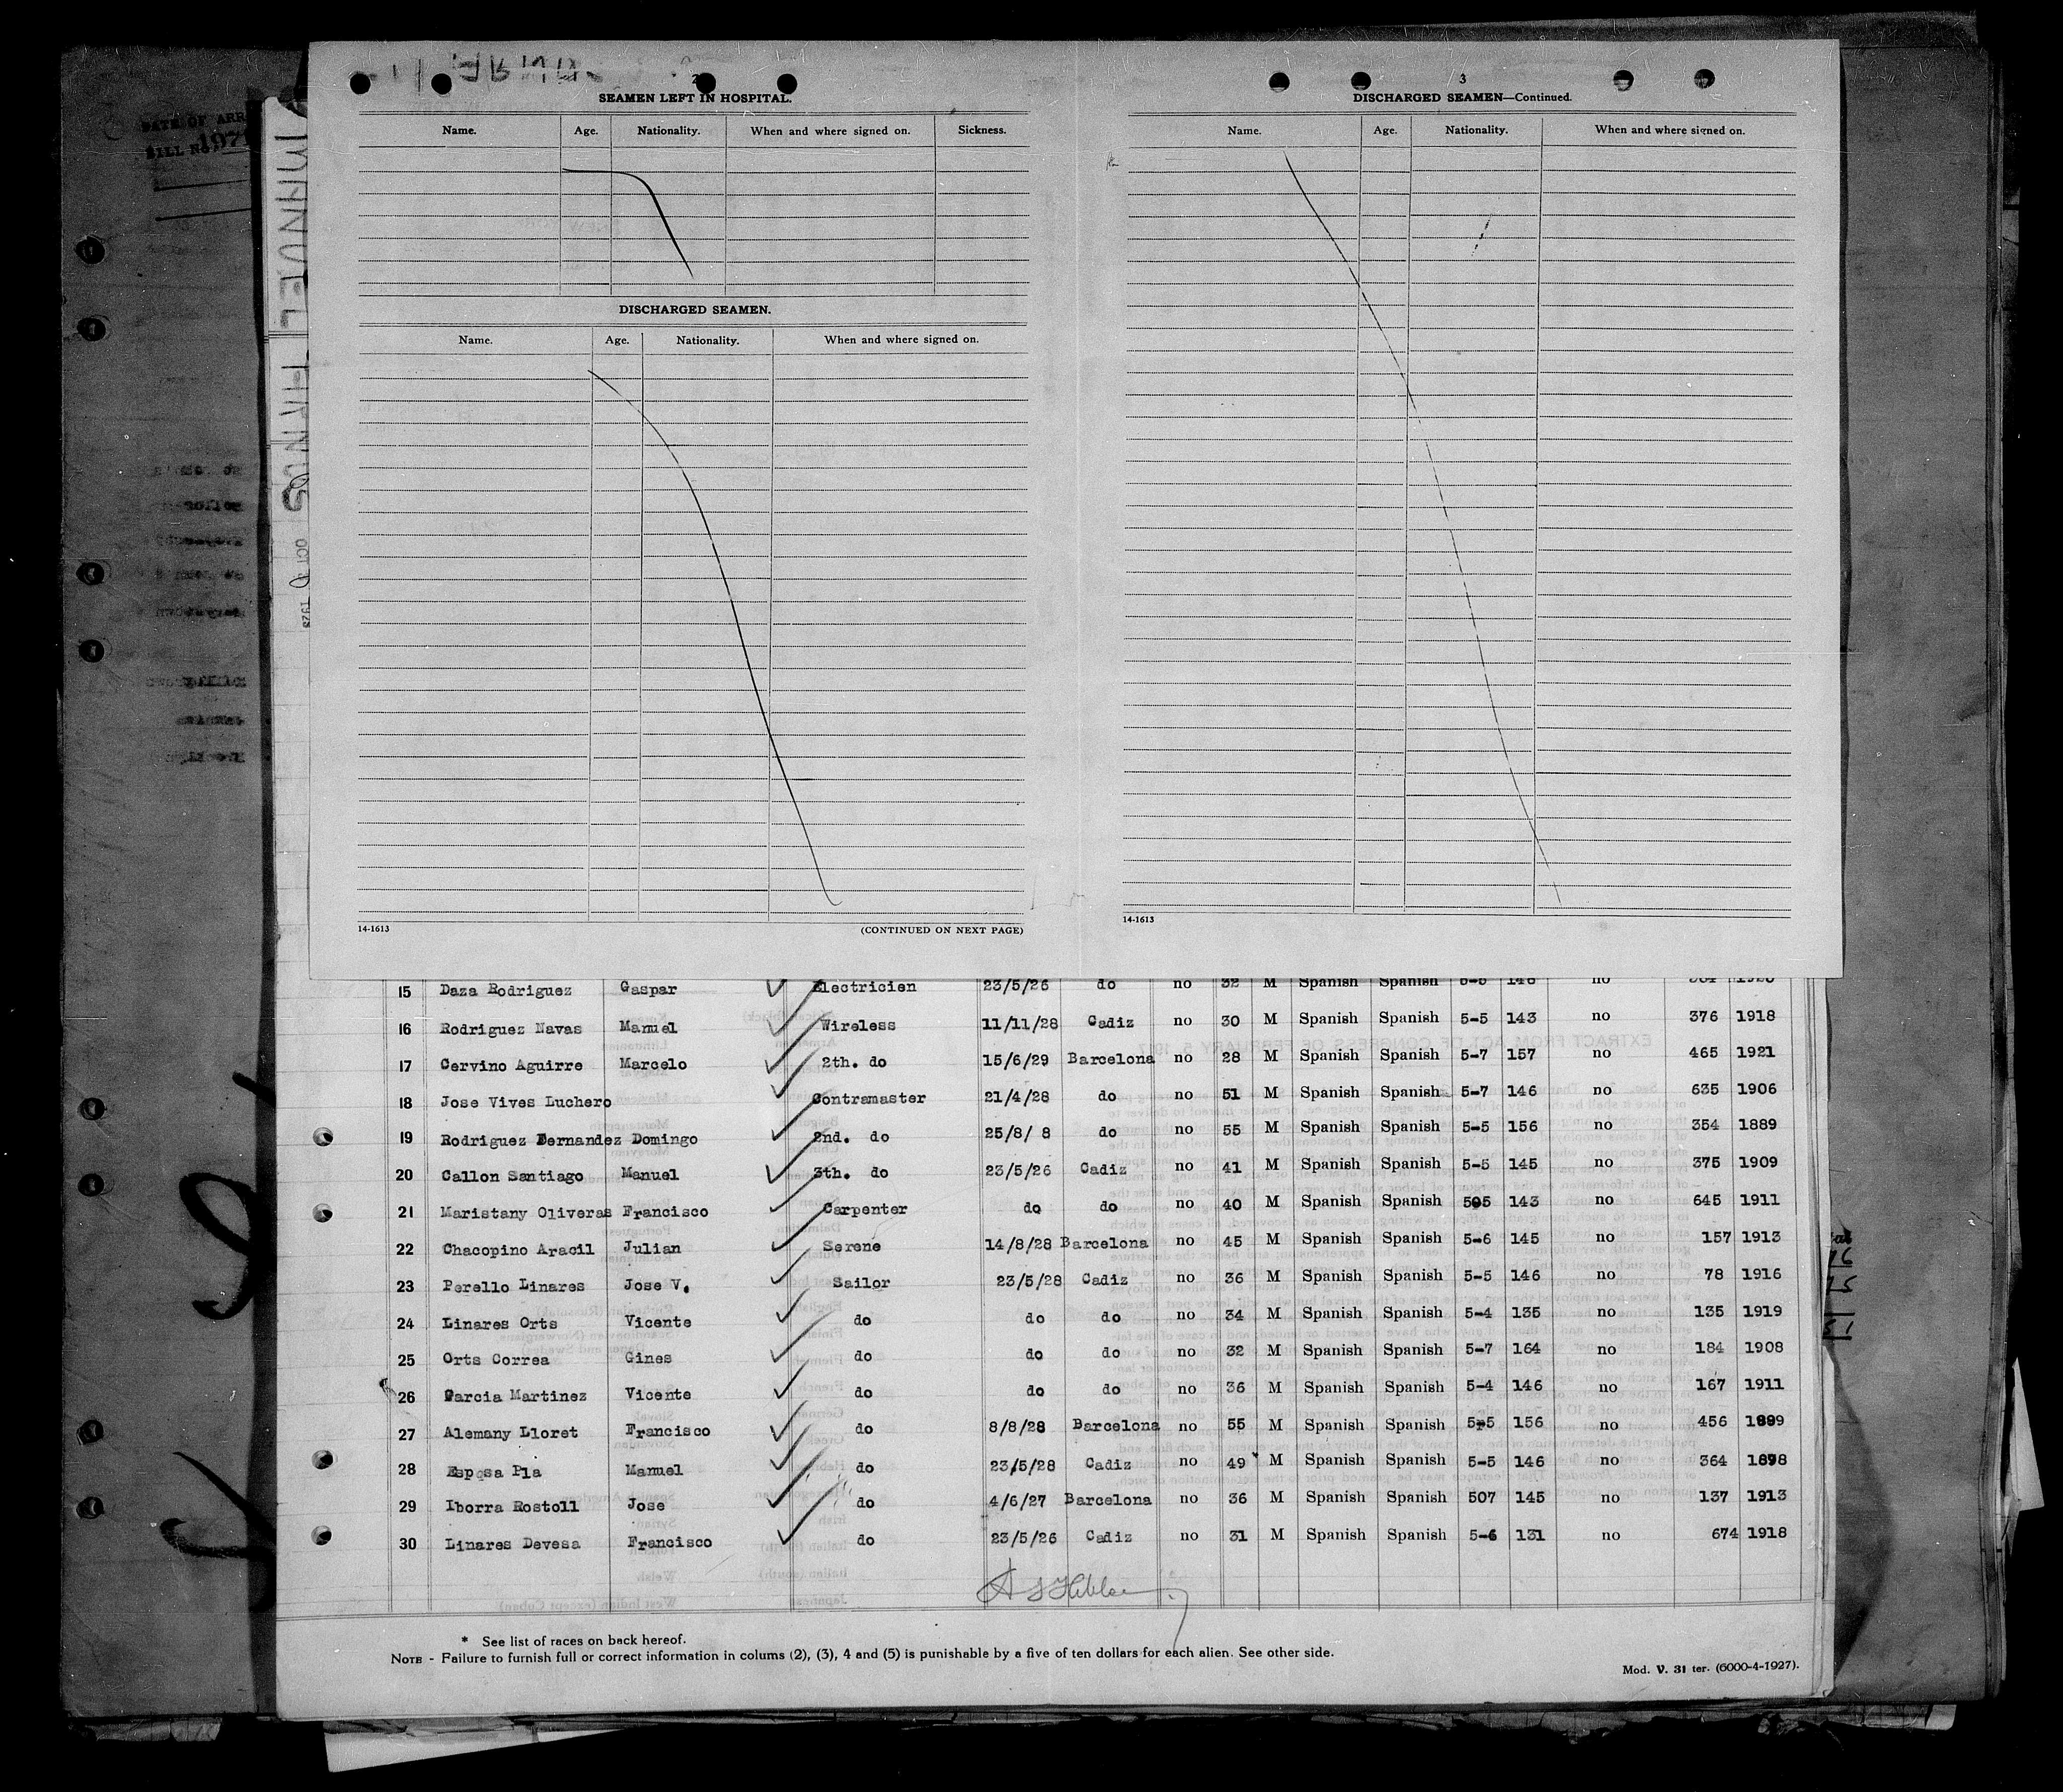 2
SEAMEN LEFT IN HOSPITAL.
Name. Age. Nationality. When and where signed on. Sickness.
DISCHARGED SEAMEN.
Name. Age. Nationality. When and where signed on.
14-1613 (CONTINUED ON NEXT PAGE)
3
DISCHARGED SEAMEN—Continued.
Name. Age. Nationality. When and where signed on.
14-1613
MANUEL ARNUS
OCT
15 Daza Rodriguez Gaspar Electricien 23/5/26 do no 32 M Spanish Spanish 5-5 146 no
16 Rodriguez Navas Manuel Wireless 11/11/28 Cadiz no 30 M Spanish Spanish 5-5 143 no 376 1918
17 Cervino Aguirre Marcelo 2th. do 15/6/29 Barcelona no 28 M Spanish Spanish 5-7 157 no 465 1921
18 Jose Vives Luchero Contramaster 21/4/28 do no 51 M Spanish Spanish 5-7 146 no 635 1906
19 Rodriguez Fernandez Domingo 2nd. do 25/8/ 8 do no 55 M Spanish Spanish 5-5 156 no 354 1889
20 Callon Santiago Manuel 3th. do 23/5/26 Cadiz no 41 M Spanish Spanish 5-5 145 no 375 1909
21 Maristany Oliveras Francisco Carpenter do do no 40 M Spanish Spanish 505 143 no 645 1911
22 Chacopino Aracil Julian Serene 14/8/28 Barcelona no 45 M Spanish Spanish 5-6 145 no 157 1913
23 Perello Linares Jose V. Sailor 23/5/28 Cadiz no 36 M Spanish Spanish 5-5 146 no 78 1916
24 Linares Orts Vicente do do do no 34 M Spanish Spanish 5-4 135 no 135 1919
25 Orts Correa Gines do do do no 32 M Spanish Spanish 5-7 164 no 184 1908
26 Garcia Martinez Vicente do do do no 36 M Spanish Spanish 5-4 146 no 167 1911
27 Alemany Lloret Francisco do 8/8/28 Barcelona no 55 M Spanish Spanish 5-5 156 no 456 1899
28 Esposa Pla Manuel do 23/5/28 Cadiz no 49 M Spanish Spanish 5-5 146 no 364 1898
29 Iborra Rostoll Jose do 4/6/27 Barcelona no 36 M Spanish Spanish 507 145 no 137 1913
30 Linares Devesa Francisco do 23/5/26 Cadiz no 31 M Spanish Spanish 5-6 131 no 674 1918
* See list of races on back hereof.
NOTE - Failure to furnish full or correct information in colums (2), (3), 4 and (5) is punishable by a five of ten dollars for each alien. See other side.
Mod. V. 31 ter. (6000-4-1927).